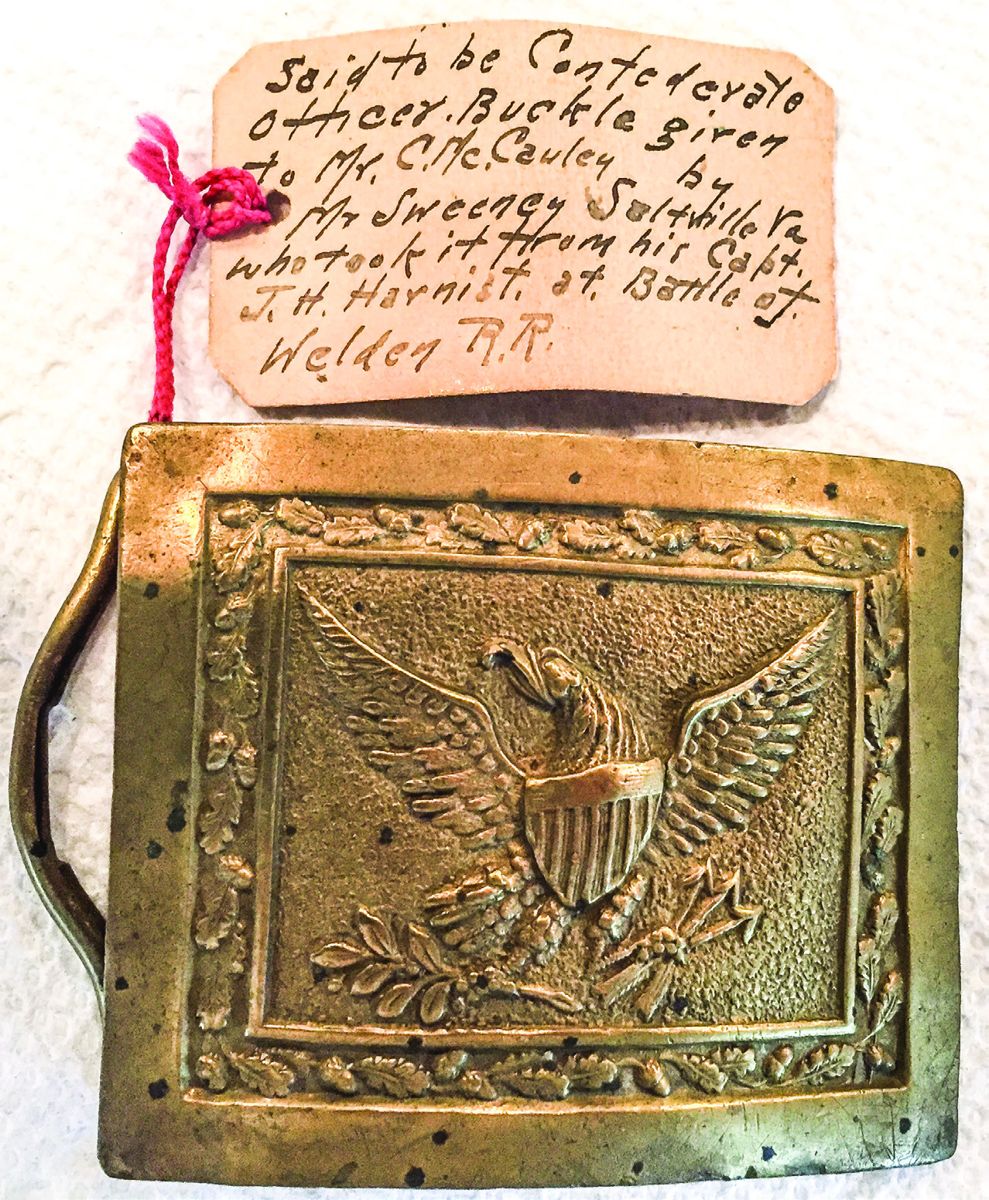 Said to be Confederate
Officer. Buckle given
to Mr. C. Mc. Cauley by
Mr Sweeney Saltville Va
who took it from his Capt.
J. H. Harnist. at. Battle of.
Welden R.R.